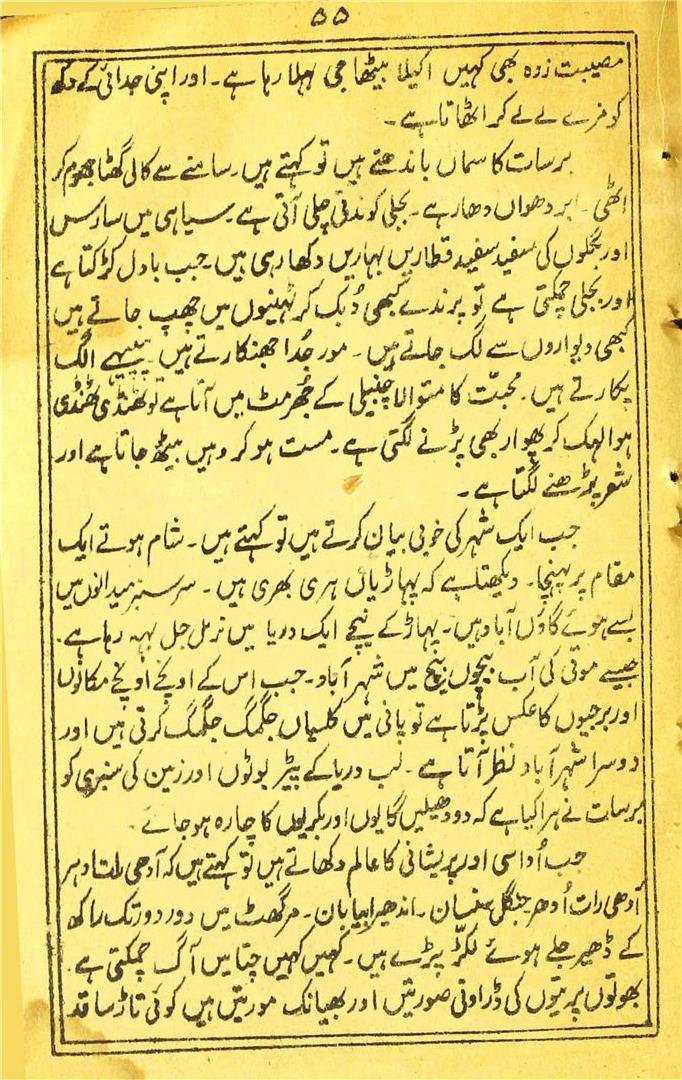 ۵۵
مصیبت زدہ بھی کہیں اکیلا بیٹھا جی بہلا رہا ہے۔ اور اپنی جدائی کے دکھ
کو مزے لے لے کر اٹھاتا ہے۔
برسات کا سماں باندھتے ہیں تو کہتے ہیں۔ سامنے سے کالی گھٹا جھوم کر
اٹھی۔ ابر دھواں دھار ہے۔ بجلی کوندتی چلی آتی ہے۔ سیاہی میں سارس
اور بگلوں کی سفید سفید قطاریں بہاریں دکھا رہی ہیں۔ جب بادل کڑکتا ہے
اور بجلی چمکتی ہے تو پرندے کبھی دبک کر ٹہنیوں میں چھپ جاتے ہیں
کبھی دیواروں سے لگ جاتے ہیں۔ مور جُدا جھنکارتے ہیں پپیہے الگ
پکارتے ہیں۔ محبّت کا متوالا چنبیلی کے جُھرمٹ میں آتا ہے تو ٹھنڈی ٹھنڈی
ہوا لہک کر پھوار بھی پڑنے لگتی ہے۔ مست ہو کر وہیں بیٹھ جاتا ہے اور
شعر پڑھنے لگتا ہے۔
جب ایک شہر کی خوبی بیان کرتے ہیں تو کہتے ہیں۔ شام ہوتے ایک
مقام پر پہنچا۔ دیکھتا ہے کہ پہاڑیاں ہری بھری ہیں۔ سرسبز میدانوں میں
بسے ہوئے گاؤں آباد ہیں۔ پہاڑ کے نیچے ایک دریا میں نرمل جل بہہ رہا ہے۔
جیسے موتی کی آب بیچوں بیچ میں شہر آباد۔ جب اس کے اونچے اونچے مکانوں
اور برجیوں کا عکس پڑتا ہے تو پانی میں کلسیاں جگمگ جگمگ کرتی ہیں اور
دوسرا شہر آباد نظر آتا ہے۔ لب دریا کے پیڑ بوٹوں اور زمین کی سبزی کو
برسات نے ہرا کیا ہے کہ دودھیلیں گایوں اور بکریوں کا چارہ ہو جائے۔
جب اُداسی اور پریشانی کا عالم دکھاتے ہیں تو کہتے ہیں کہ آدھی رات ادہر
آدھی رات اُدھر جنگل سنسان۔ اندھیرا بیابان۔ مرگھٹ میں دور دور تک راکھ
کے ڈھیر جلے ہوئے لکڑ پڑے ہیں۔ کہیں کہیں چتا میں آگ چمکتی ہے۔
بھوتوں پریتوں کی ڈراونی صورتیں اور بھیانک مورتیں ہیں کوئی تاڑ سا قد